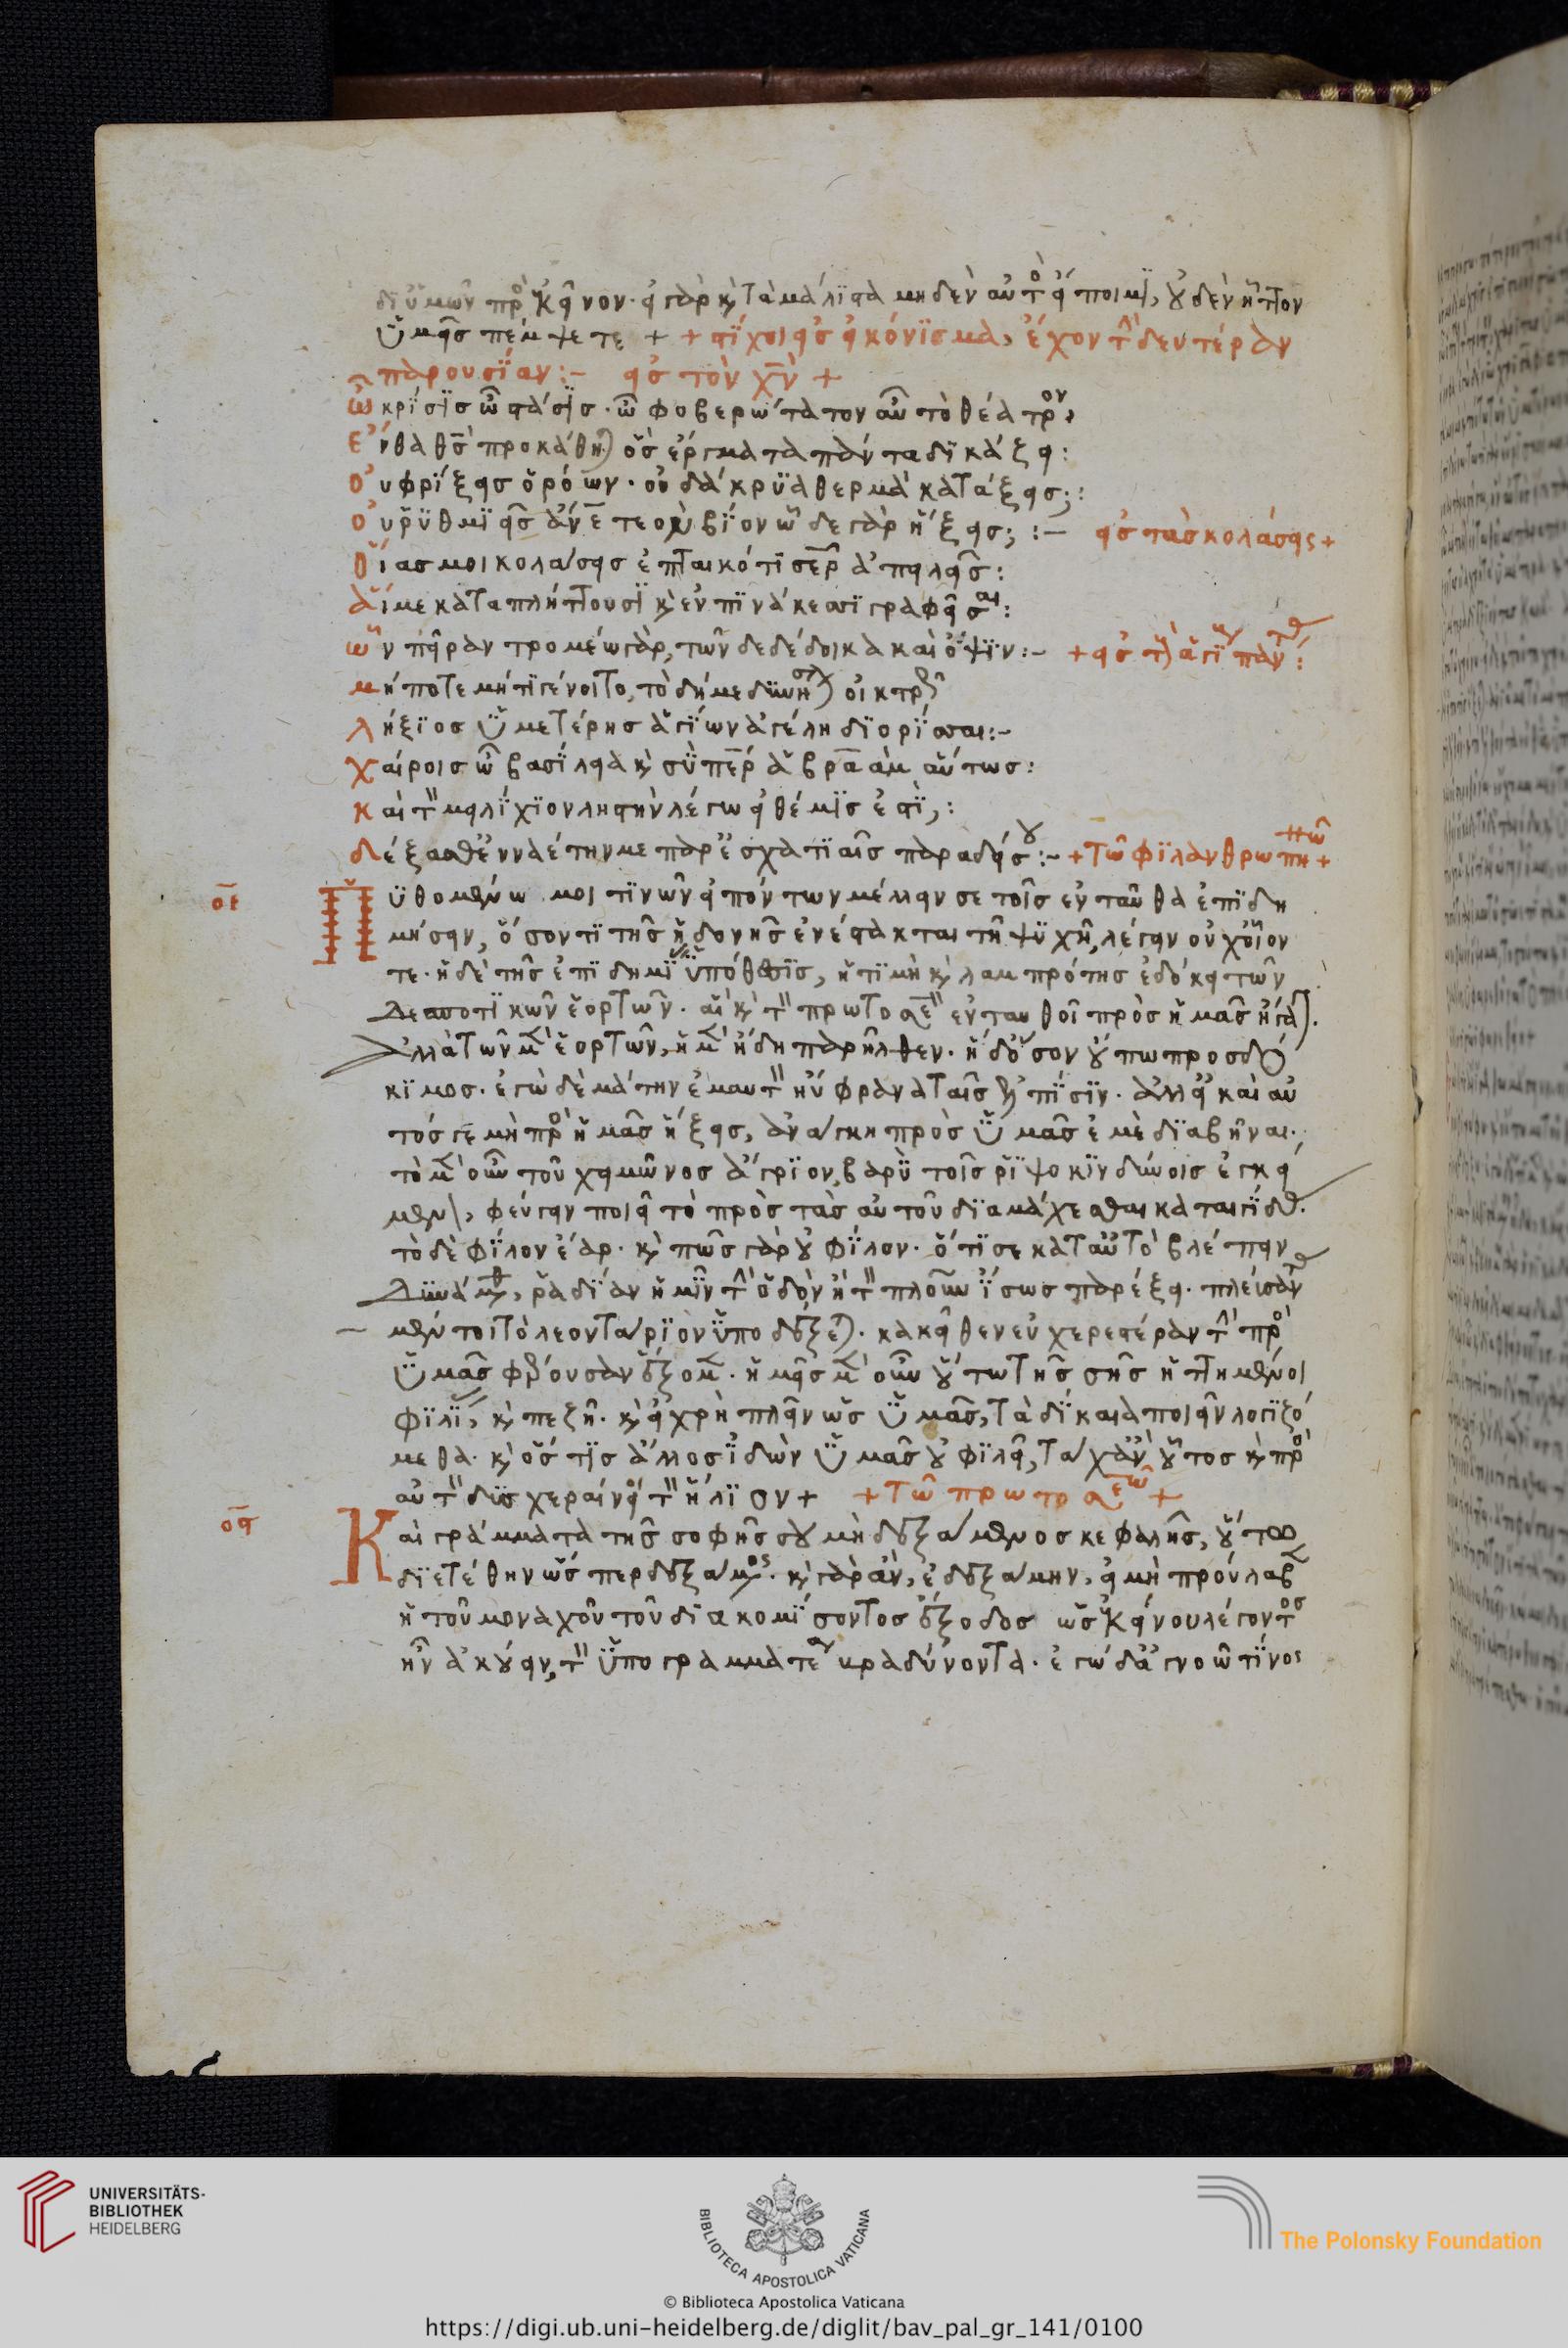 δι' ὑμῶν πρὸς ἐκεῖνον· εἰ γὰρ καὶ τὰ μάλιστα μηδὲν αὐτὸς εἴποιμι, οὐδὲν ἧττον
ὑμεῖς πέμψετε + + στίχοι εἰς εἰκόνισμα, ἔχον τὴν δευτέραν
παρουσίαν :- εἰς τὸν χ̅ν̅ +
ὦ κρίσις ὦ στάσις· ὦ φοβερώτατον αὖ τὸ θέατρον,
ἔνθα θ̅ς̅ προκάθηται ὃς ἔργματα πάντα δικάζει :
οὐ φρίξεις ὁρόων· οὐ δάκρυα θερμὰ κατάξεις; :
οὐ ῥυθμιεῖς τεὸν βίον ὧδε γὰρ ἥξεις; :- εἰς τὰς κολάσεις +
οἵας μοι κολάσεις ἐπταικότι σ̅ε̅ρ̅ ἀπειλεῖς :
αἵ με καταπλήττουσι καὶ ἐν πίνακε γραφεῖσαι :
ὧν πεῖραν τρομέω γὰρ, τῶν δέδοικα καὶ ὄψιν :- +
μήποτε μή τι γένοιτο, τὸ δή με οἰκτρ
λήξιος ὑμετέρης ἁγίων ἀγέλη διορίσαι :-
χαίροις ὦ βασίλεια καὶ σὺ π̅ε̅ρ ἁβρ̅α̅ὰμ αὔτως :
καὶ τὸν μειλίχιον ληστὴν λέγω εἰ θέμις ἐστί, :
δέξασθ' ἐνναέτην με παρ' ἐσχατιαῖς παραδείσου :- + τῶ φιλανθρωπη +
ο̅ε̅
Πυθομένω μοι τινῶν εἰπόντων μέλλειν σε τοῖς ἐνταῦθα ἐπιδη
μήσειν, ὅσον τι τῆς ἡδονῆς ἐνέστακται τῇ ψυχῇ, λέγειν οὐχ οἷόν
τε· ἡ δὲ τῆς ἐπιδημίας ὑπόθεσις, ἥτις μὴ καὶ λαμπρότης ἐδόκει τῶν
Δεσποτικῶν ἑορτῶν· αἳ καὶ τὸν πρωτο ἐνταυθοῖ πρὸς ἡμᾶς ἤγαγον.
Ἀλλὰ τῶν μὲν ἑορτῶν, ἡ μὲν ἤδη παρῆλθεν· ἡ δ' ὅσον οὔπω προσδό
κιμος· ἐγὼ δὲ μάτην ἐμαυτὸν ηὔφρανα ταῖς ἐλπίσιν· ἀλλ' εἰ καὶ αὐ
τός γε μὴ πρὸς ἡμᾶς ἥξεις, ἀνάγκη πρὸς ὑμᾶς ἐμὲ διαβῆναι·
τὸ μὲν οὖν τοῦ χειμῶνος ἄγριον, βαρὺ τοῖς ῥιψοκινδύνοις ἐγκεί
μενον, φεύγειν ποιεῖ τὸ πρὸς τὰς αὐτοῦ διαμάχεσθαι καταιγίδας.
τὸ δὲ φίλον ἔαρ· καὶ πῶς γὰρ οὐ φίλον· ὅτι σε κατ' αὐτὸ βλέπειν
Δυνάμεθα, ῥαδίαν ἡμῖν τὴν ὁδὸν ἢ τὸν πλοῦν ἴσως παρέξει· πλεῖσαν
μέντοι τὸ λεονταρίον ὑποδέξεται. κἀκεῖθεν εὐχερεστέραν τὴν πρὸς
ὑμᾶς φέρουσαν ἕξομεν· ἡμεῖς μὲν οὖν οὕτω τῆς σῆς ἡττημένοι
φιλίας, καὶ πεζῇ· καὶ εἰ χρὴ πλεῖν ὡς ὑμᾶς, τὰ δίκαια ποιεῖν λογιζό
μεθα· καὶ ὅστις ἄλλος ἰδὼν ὑμᾶς οὐ φιλεῖ, τάχ' ἂν οὗτος καὶ πρὸς
αὐτὸν δυσχεραίνοι τὸν ἥλιον + + τῶ πρωτο +
ο̅ϛ̅
Καὶ γράμματα τῆς σοφῆς σου μὴ δεξάμενος κεφαλῆς, οὕτω
διετέθην ὥσπερ δεξάμενος· καὶ γὰρ ἂν, ἐδεξάμην, εἰ μὴ προύλαβεν
ἡ τοῦ μοναχοῦ τοῦ διακομίσοντος ἔξοδος ὡς ἐκείνου λέγοντος
ἦν ἀκούειν, τὸν ὑπογραμματέα κραδύνοντα· ἐγὼ δ' ἀγνοῶ τίνος
UNIVERSITÄTS-
BIBLIOTHEK
HEIDELBERG
BIBLIOTECA APOSTOLICA VATICANA
The Polonsky Foundation
© Biblioteca Apostolica Vaticana
https://digi.ub.uni-heidelberg.de/diglit/bav_pal_gr_141/0100